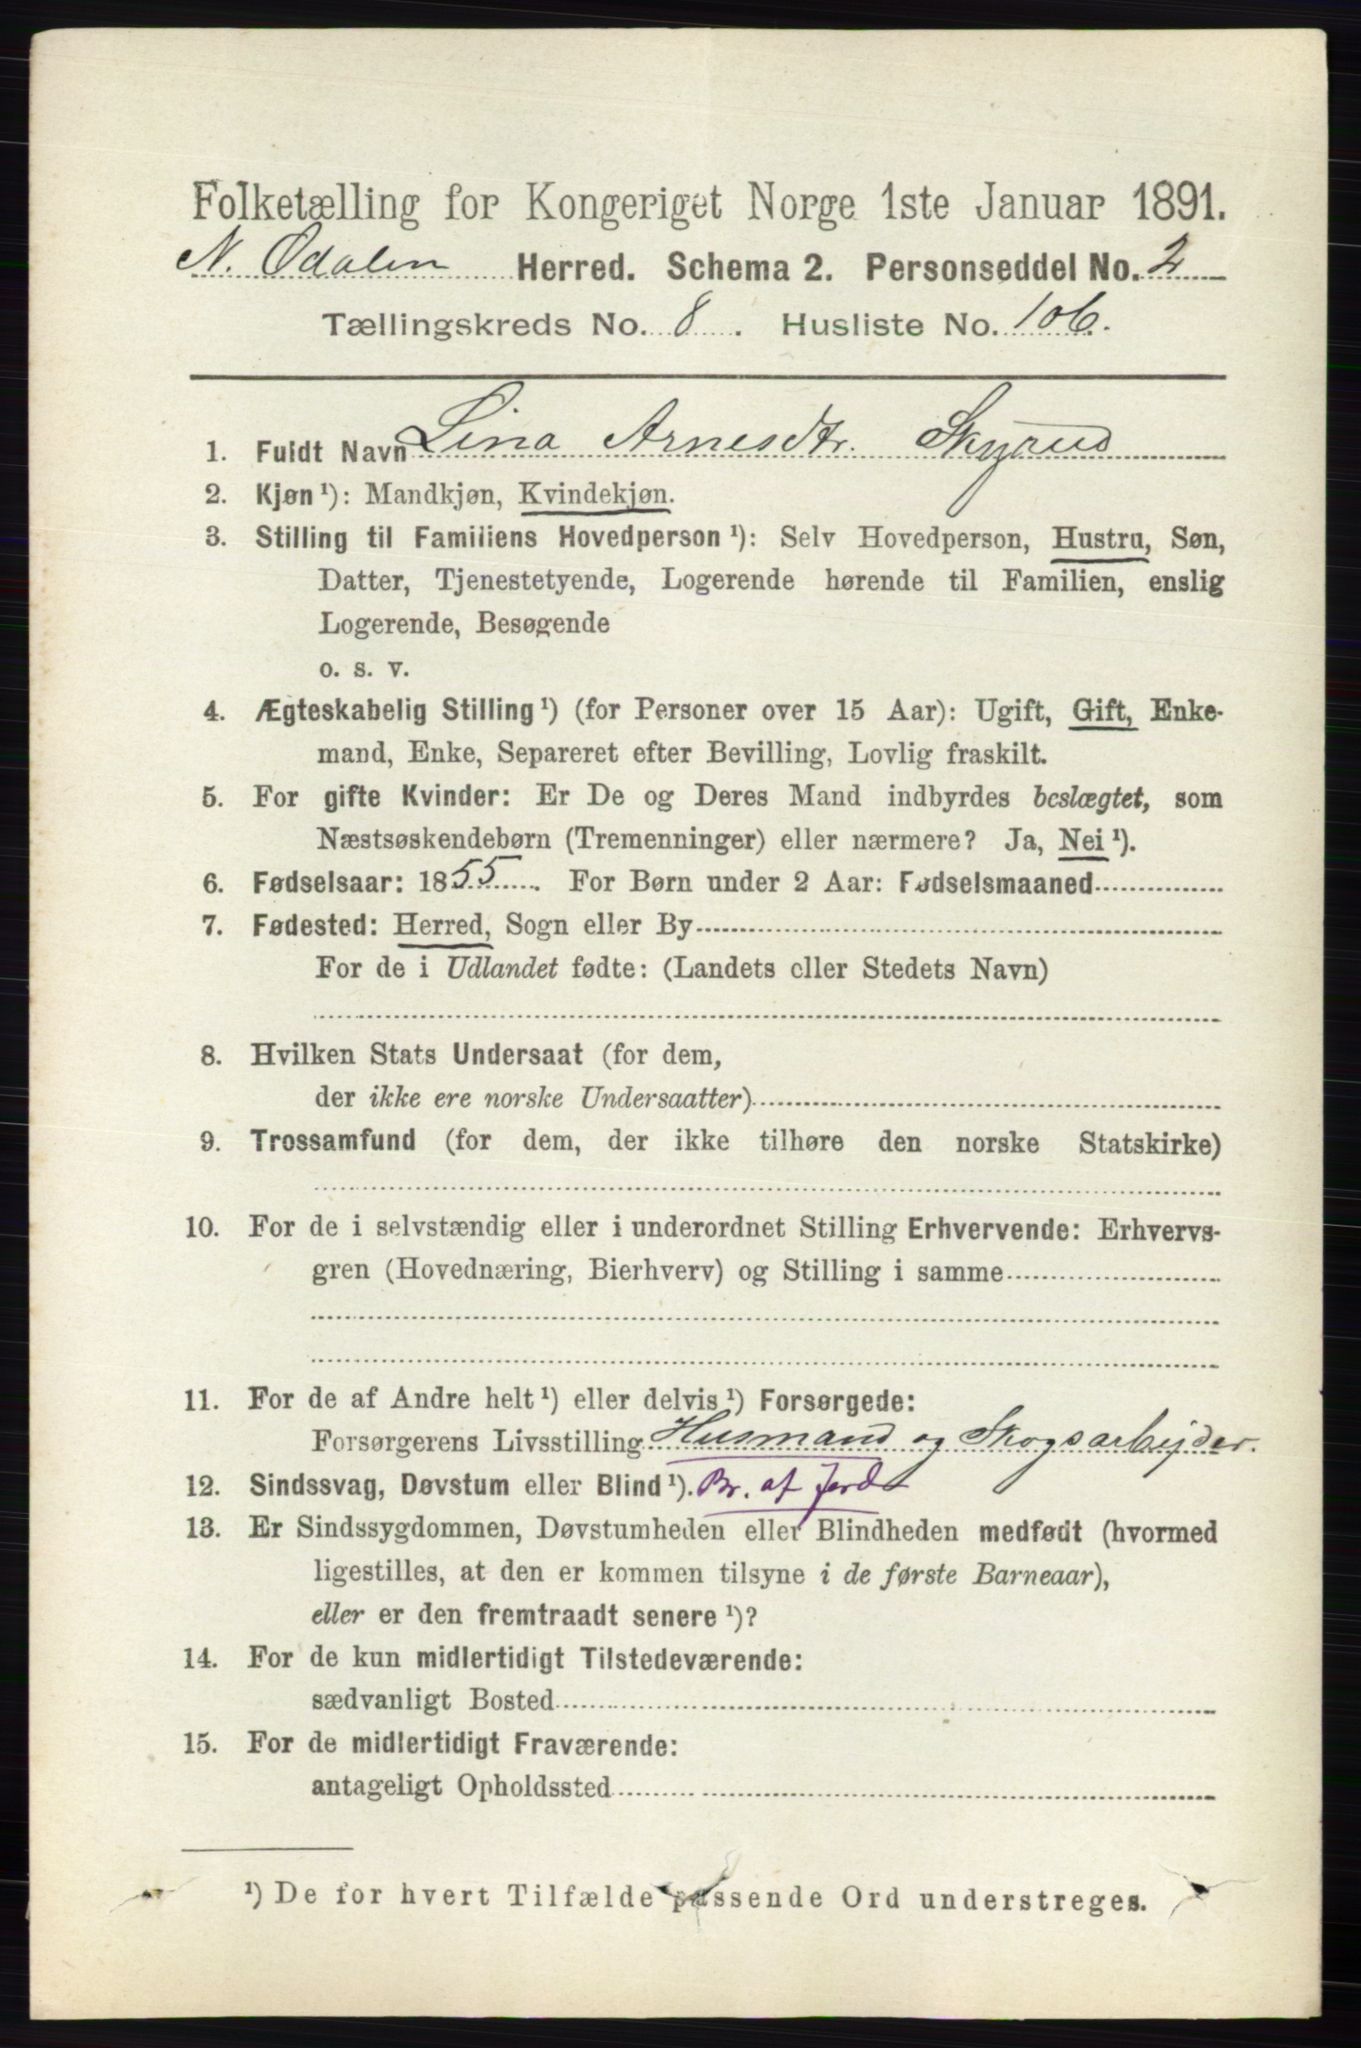 Folketælling for Kongeriget Norge 1ste Januar 1891.
N. Odalen Herred. Schema 2. Personseddel No. 2
Tællingskreds No. 8. Husliste No. 106.
1. Fuldt Navn Lina Arnesdtr. Skyrud
2. Kjøn ¹): Mandkjøn, Kvindekjøn.
3. Stilling til Familiens Hovedperson ¹): Selv Hovedperson, Hustru, Søn,
Datter, Tjenestetyende, Logerende hørende til Familien, enslig
Logerende, Besøgende
o. s. v.
4. Ægteskabelig Stilling ¹) (for Personer over 15 Aar): Ugift, Gift, Enke-
mand, Enke, Separeret efter Bevilling, Lovlig fraskilt.
5. For gifte Kvinder: Er De og Deres Mand indbyrdes beslægtet, som
Næstsøskendebørn (Tremenninger) eller nærmere? Ja, Nei ¹).
6. Fødselsaar: 1855. For Børn under 2 Aar: Fødselsmaaned
7. Fødested: Herred, Sogn eller By
For de i Udlandet fødte: (Landets eller Stedets Navn)
8. Hvilken Stats Undersaat (for dem,
der ikke ere norske Undersaatter)
9. Trossamfund (for dem, der ikke tilhøre den norske Statskirke)
10. For de i selvstændig eller i underordnet Stilling Erhvervende: Erhvervs-
gren (Hovednæring, Bierhverv) og Stilling i samme
11. For de af Andre helt ¹) eller delvis ¹) Forsørgede:
Forsørgerens Livsstilling Husmand og Skogsarbejder.
12. Sindssvag, Døvstum eller Blind ¹). Br. af Jord
13. Er Sindssygdommen, Døvstumheden eller Blindheden medfødt (hvormed
ligestilles, at den er kommen tilsyne i de første Barneaar),
eller er den fremtraadt senere ¹)?
14. For de kun midlertidigt Tilstedeværende:
sædvanligt Bosted
15. For de midlertidigt Fraværende:
antageligt Opholdssted
¹) De for hvert Tilfælde passende Ord understreges.